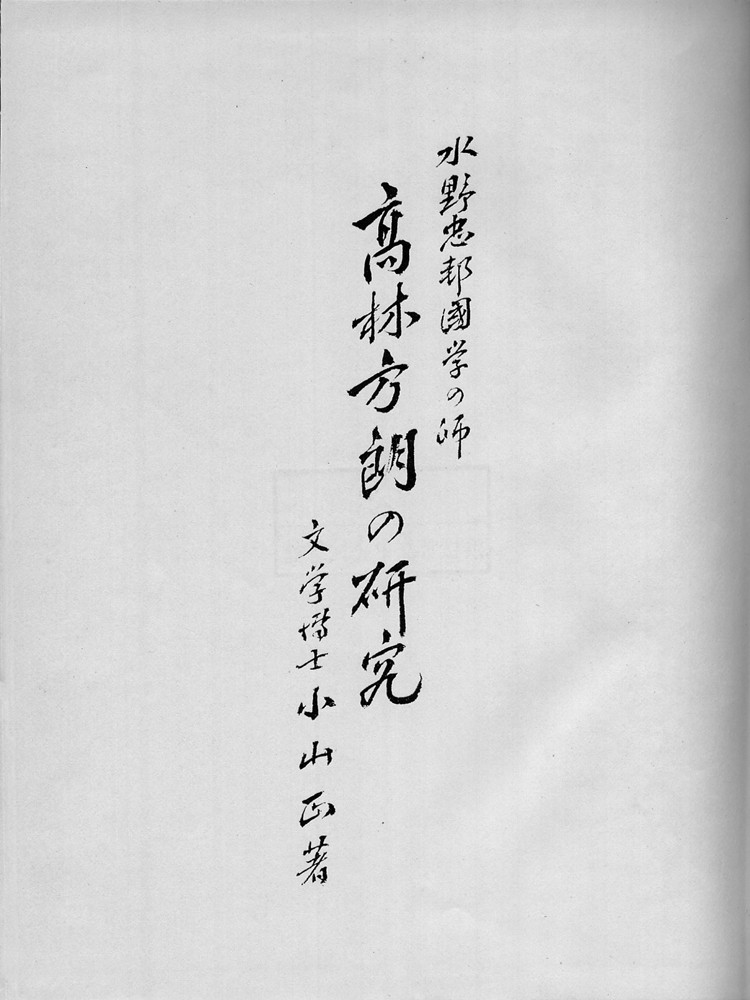 水野忠邦國学の師
高林方朗の研究
文学博士小山正著